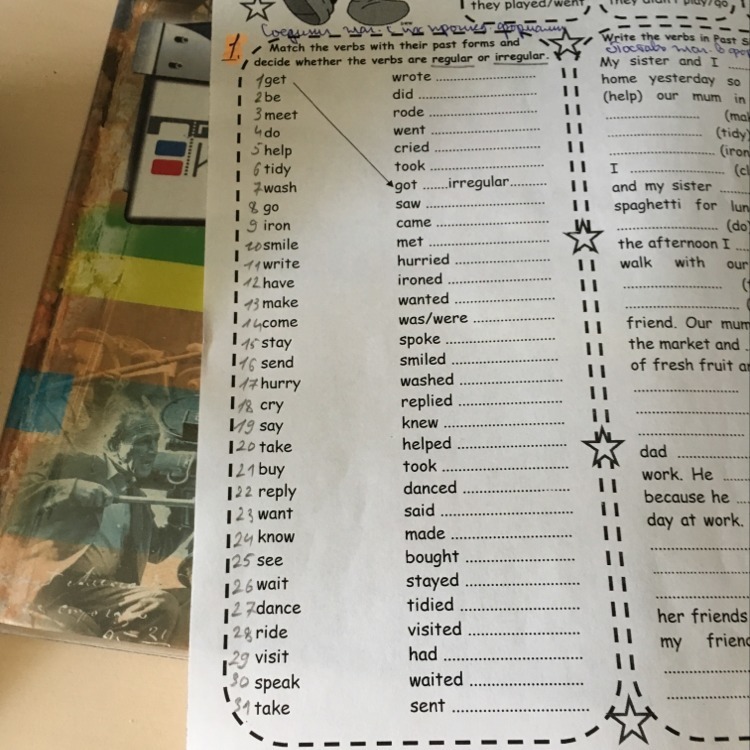 they played/went
They didn't play/go
Соедини глаг. с их прошед формами
1.
Match the verbs with their past forms and
decide whether the verbs are regular or irregular.
1 get wrote ........................
2 be did ........................
3 meet rode ........................
4 do went ........................
5 help cried ........................
6 tidy took ........................
7 wash got ......irregular.........
8 go saw ........................
9 iron came ........................
10 smile met ........................
11 write hurried ........................
12 have ironed ........................
13 make wanted ........................
14 come was/were ........................
15 stay spoke ........................
16 send smiled ........................
17 hurry washed ........................
18 cry replied ........................
19 say knew ........................
20 take helped ........................
21 buy took ........................
22 reply danced ........................
23 want said ........................
24 know made ........................
25 see bought ........................
26 wait stayed ........................
27 dance tidied ........................
28 ride visited ........................
29 visit had ........................
30 speak waited ........................
31 take sent ........................
Write the verbs in Past S
глаг. в
My sister and I ....
home yesterday so
(help) our mum in
........................ (ma
........................ (tidy)
........................ (iron
I ........................ (cl
and my sister ........
spaghetti for lun
........................ (do)
the afternoon I ....
walk with our
........................ (
........................ (
friend. Our mum
the market and .
of fresh fruit a
........................
........................
dad ........
work. He ....
because he ...
day at work.
........................
........................
........................
her friends
my frien
........................
........................